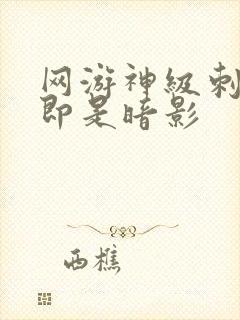 网游神级刺
即是暗影
西樵